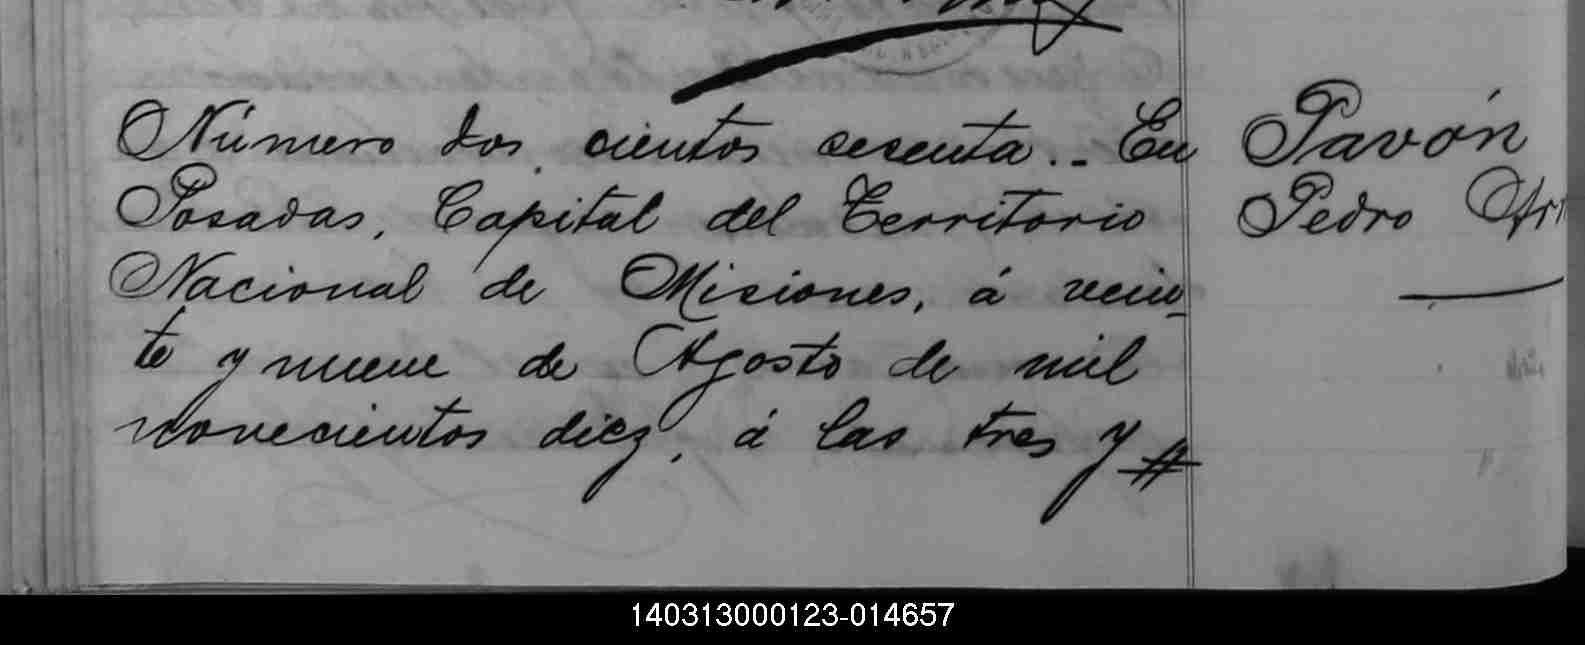 Número dos cientos sesenta.- En
Posadas, Capital del Territorio
Nacional de Misiones, á vein-
te y nueve de Agosto de mil
novecientos diez, á las tres y #
Pavón
Pedro
140313000123-014657